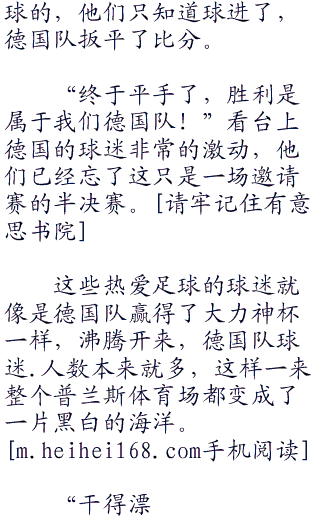 球的，他们只知道球进了，
德国队扳平了比分。
“终于平手了，胜利是
属于我们德国队！”看台上
德国的球迷非常的激动，他
们已经忘了这只是一场邀请
赛的半决赛。[请牢记住有意
思书院]
这些热爱足球的球迷就
像是德国队赢得了大力神杯
一样，沸腾开来，德国队球
迷.人数本来就多，这样一来
整个普兰斯体育场都变成了
一片黑白的海洋。
[m.heihei168.com手机阅读]
“干得漂